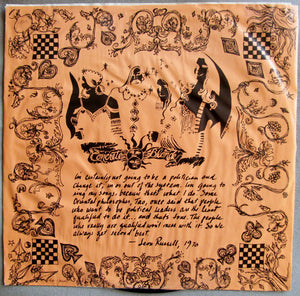 Concrete Blonde
I'm certainly not going to be a politician and
change it, in or out of the system. I'm going to
sing my songs, because that's what I do. Some
Oriental philosopher, Tao, once said that people
who want to be political leaders are the least
qualified to do it... and that's true. The people
who really are qualified won't mess with it. So we
always get second best.
— Leon Russell, 1970